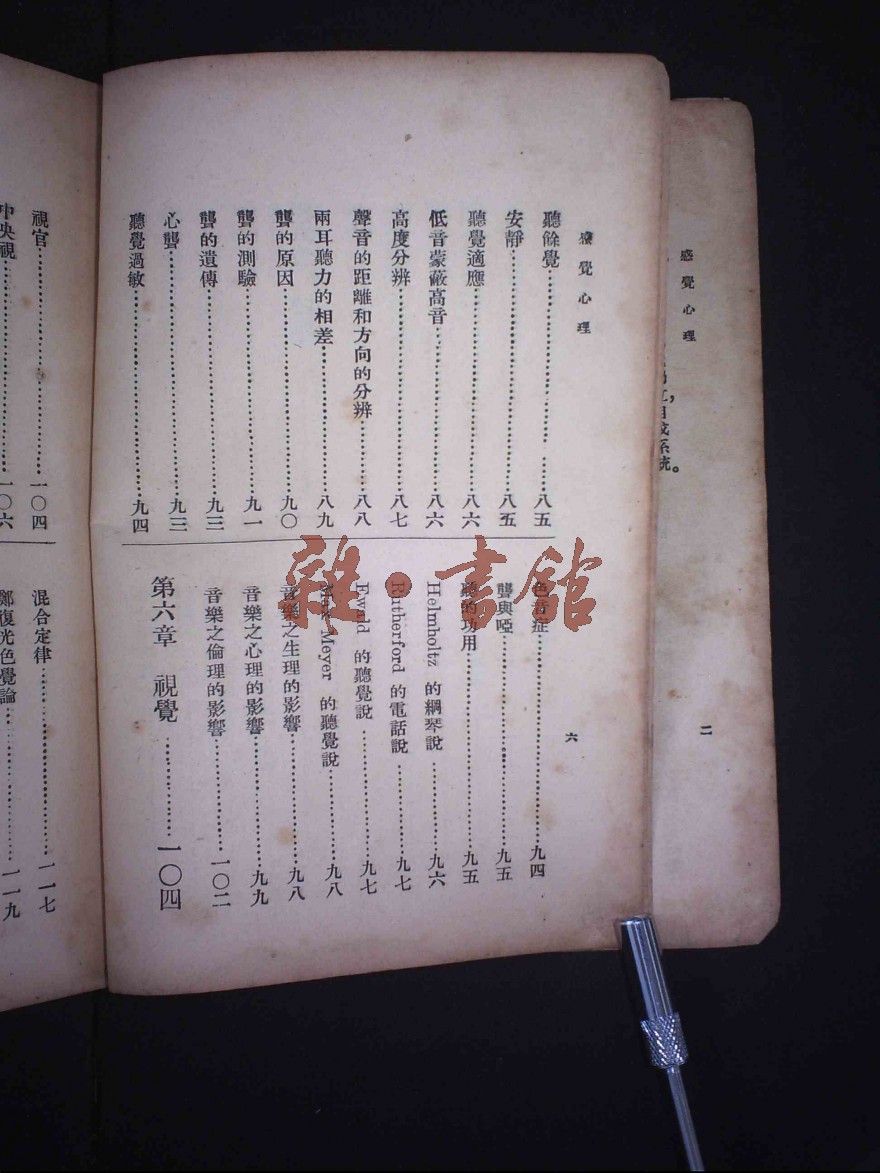 感覺心理
二
系統。
感覺心理
六
聽餘覺……八五
安靜……八五
聽覺適應……八六
低音蒙蔽高音……八六
高度分辨……八七
聲音的距離和方向的分辨……八八
兩耳聽力的相差……八九
聾的原因……九〇
聾的測驗……九一
聾的遺傳……九三
心聾……九三
聽覺過敏……九四
色音症……九四
聾與啞……九五
聽的功用……九五
Helmholtz 的綱琴說……九六
Rutherford 的電話說……九七
Ewald 的聽覺說……九七
Max Meyer 的聽覺說……九八
音樂之生理的影響……九八
音樂之心理的影響……九九
音樂之倫理的影響……一〇二
第六章 視覺……一〇四
視官……一〇四
中央視……一〇六
混合定律……一一七
鄭復光色覺論……一一九
雜·書館